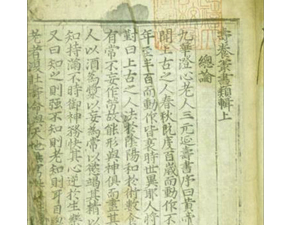 壽養叢書類輯上
總論
九華澄心老人三元延壽書序曰黃帝
問上古之人春秋皆度百歲而動作不
年至半百而動作皆衰時世異耶人將
對曰上古之人法於陰陽和於術數食
有常不妄作勞故能形與神俱而盡其
人以酒爲漿以妄爲常以慾竭其精以
知持滿不時御神務快其心逆於生樂
又曰知之則强不知則老知則耳目
老者